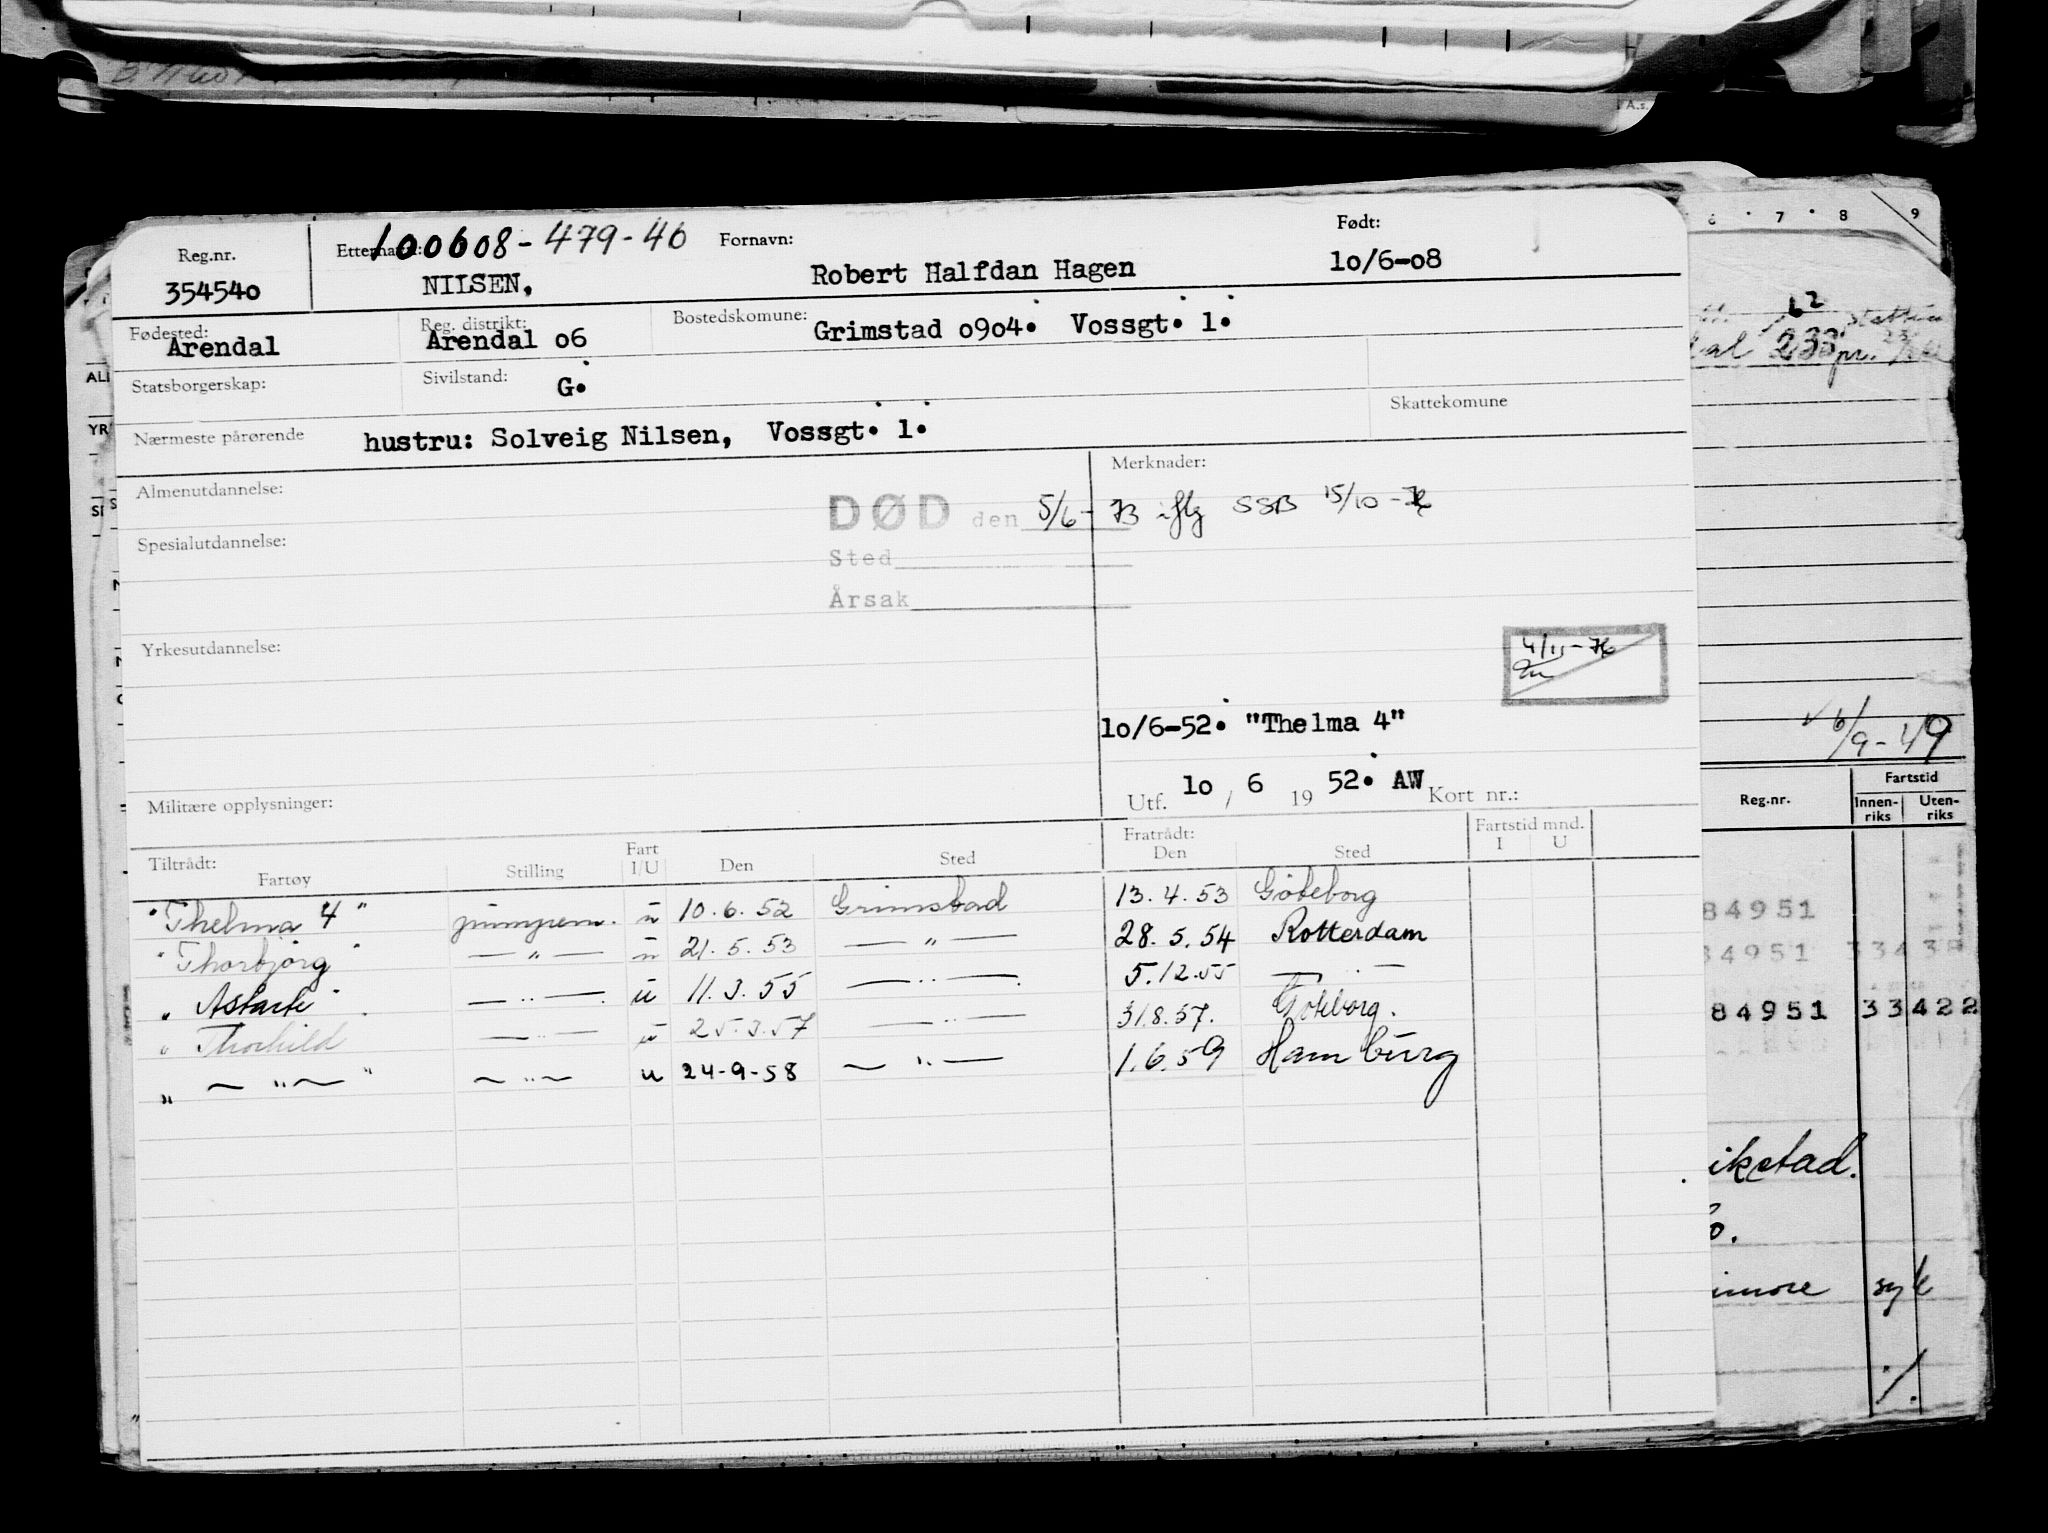 Reg.nr. Etternavn: 100608-479-46 Fornavn: Født:
354540 NILSEN, Robert Halfdan Hagen 10/6-08
Fødested: Reg. distrikt: Bostedskomune:
Arendal Arendal 06 Grimstad 0904. Vossgt. 1.
Statsborgerskap: Sivilstand: G.
Skattekomune
Nærmeste pårørende hustru: Solveig Nilsen, Vossgt. 1.
Almenutdannelse: Merknader:
DØD den 5/6-73 iflg SSB 15/10-76
Spesialutdannelse:
Sted
Årsak
Yrkesutdannelse:
4/11-76
10/6-52. "Thelma 4"
Militære opplysninger: Utf. 10 / 6 19 52. AW Kort nr.:
Tiltrådt: Fratrådt: Fartstid mnd.
Fartøy Stilling Fart I/U Den Sted Den Sted I U
"Thelma 4" u 10.6.52 Grimstad 13.4.53 Göteborg
"Thorbjørg" — " — u 21.5.53 — " — 28.5.54 Rotterdam
" Astarte " — " — u 11.3.55 — " — 5.12.55 — " —
" Thorhild — " — u 25.3.57 — " — 31.8.57. Göteborg.
" — " — " — " — u 24-9-58 — " — 1.6.59 Hamburg
6 7 8 9
233
6/9-49
Fartstid
Reg.nr. Innen-riks Uten-riks
84951
84951
84951 33422
ikstad.
o.
imore syk
A.s.